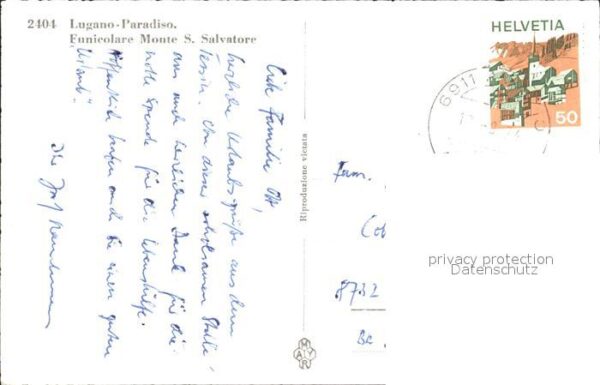 2404 Lugano-Paradiso.
Funicolare Monte S. Salvatore
Liebe Familie Ott,
herzliche Urlaubsgrüße aus dem
Tessin. Von dieser erholsamen Stelle
aus auch herzlichen Dank für die
nette Spende für die Lebenshilfe.
Hoffentlich hatten auch Sie einen guten
Urlaub!
Ihr Josf
Riproduzione vietata
MAYR
HELVETIA
50
6911
Fam.
Cob
8732
privacy protection
Datenschutz